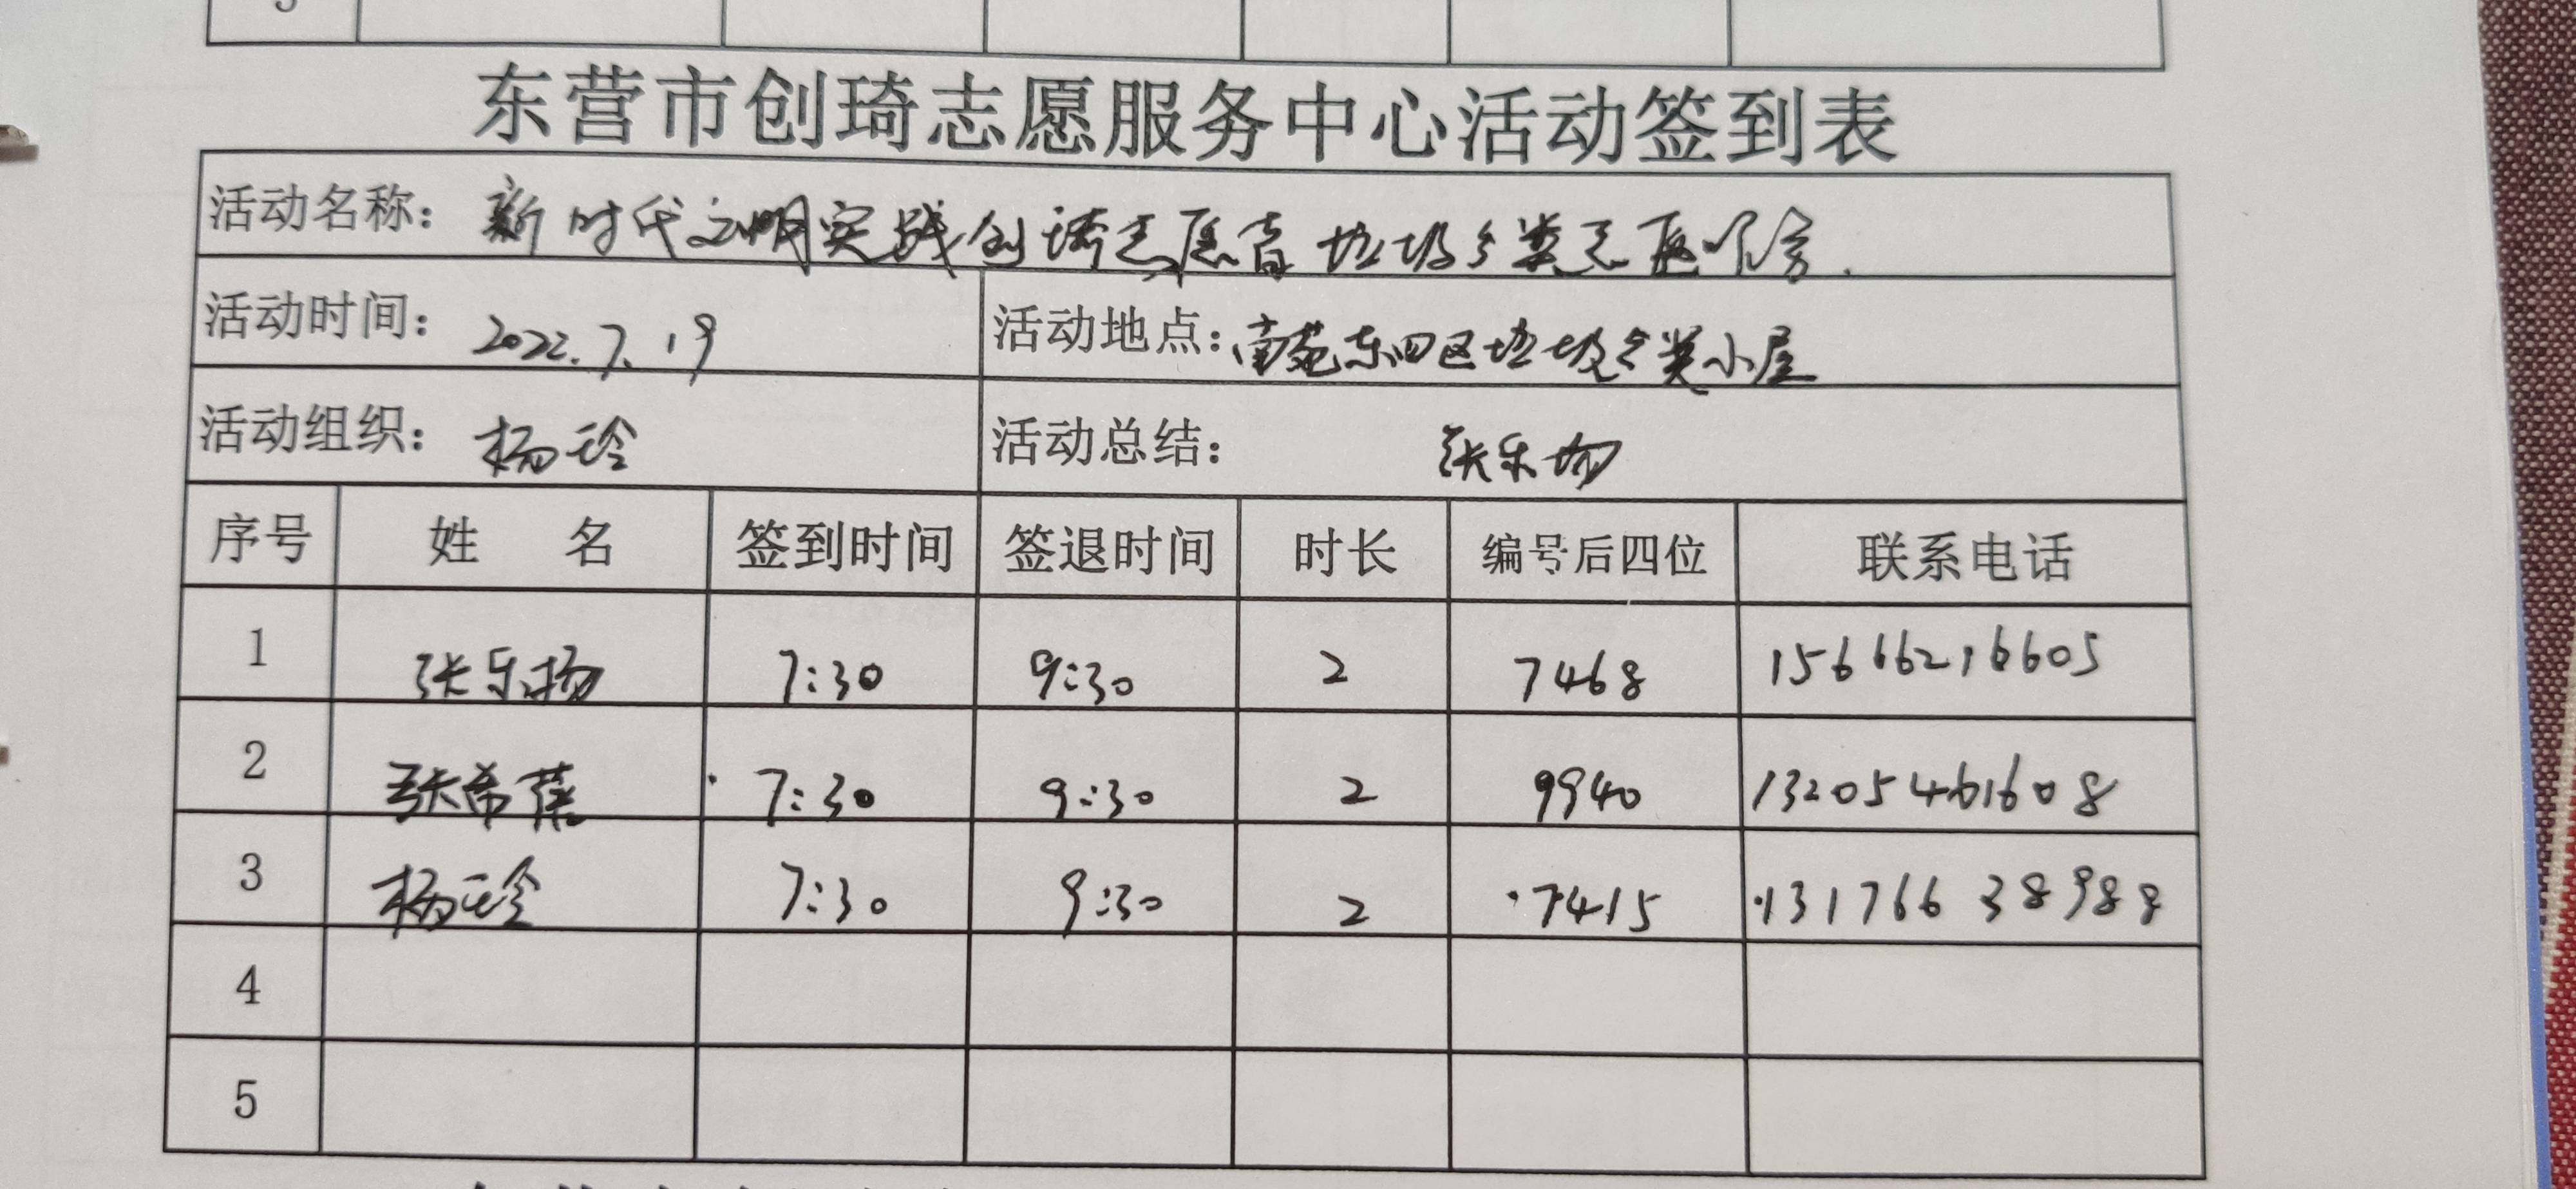 东营市创琦志愿服务中心活动签到表
活动名称: 新时代文明实践创琦志愿者垃圾分类志愿服务.
活动时间: 2022.7.19 活动地点: 南苑东四区垃圾分类小屋
活动组织: 杨玲 活动总结: 张乐扬
序号 姓名 签到时间 签退时间 时长 编号后四位 联系电话
1 张乐扬 7:30 9:30 2 7468 15666216605
2 张希蕊 7:30 9:30 2 9940 13205461608
3 杨玲 7:30 9:30 2 7415 13176638988
4
5